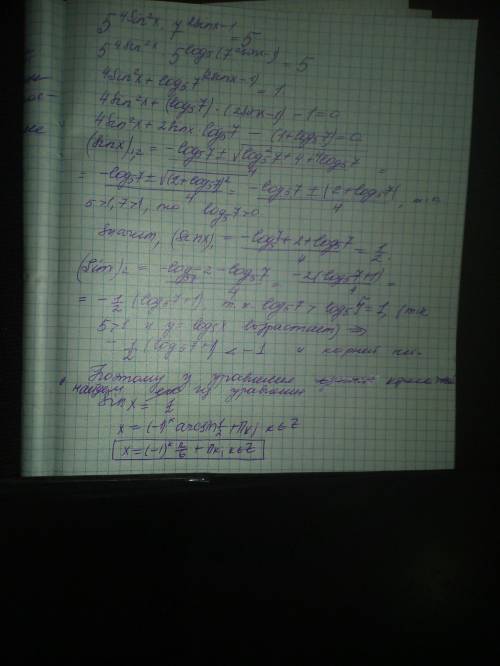 5^{4sin²x} · 7^{2sinx-1} = 5
5^{4sin²x} · 5^{log₅(7^{2sinx-1})} = 5
4sin²x + log₅7^{(2sinx-1)} = 1
4sin²x + (log₅7)·(2sinx-1) - 1 = 0
4sin²x + 2sinx·log₅7 - (1+log₅7) = 0
(sinx)₁,₂ = (-log₅7 ± √(log₅²7 + 4 + 4log₅7))/4 =
= (-log₅7 ± √(2+log₅7)²)/4 = (-log₅7 ± (2+log₅7))/4, т.к.
5>1, 7>1, то log₅7>0
Значит, (sinx)₁ = (-log₅7+2+log₅7)/4 = 1/2;
(sinx)₂ = (-log₅7-2-log₅7)/4 = -2(log₅7+1)/4 =
= -1/2 (log₅7+1) т.к. log₅7 > log₅5 = 1, (т.к.
5>1 и y=log₅x возрастает) ⇒
-1/2 (log₅7+1) < -1 и корней
Поэтому у уравнения
найдем из уравнения
sin x = 1/2
x = (-1)^k arcsin 1/2 + πk, k∈Z
x = (-1)^k π/6 + πk, k∈Z